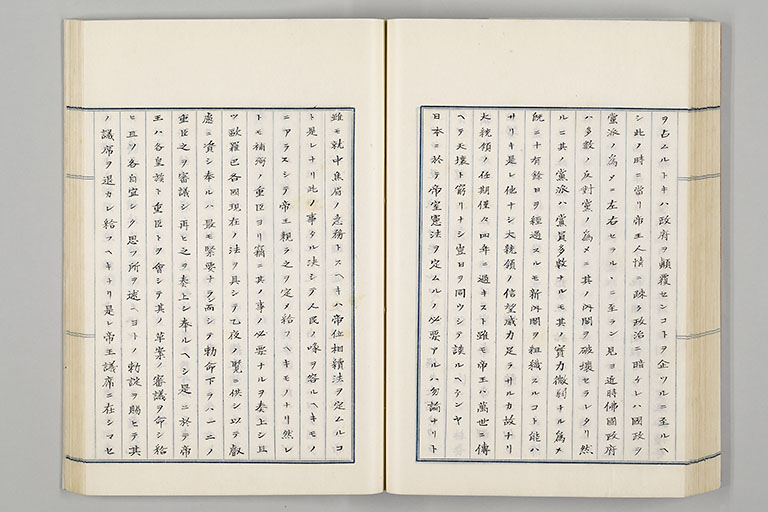 ヲ占ムルトキハ政府ヲ顛覆センコトヲ企ツルニ至ルヘ
シ此ノ時ニ當リ帝王人情ニ疎ク政治ニ暗ケレハ國政ヲ
黨派ノ為メニ左右セラルヽニ至ラン見ヨ近時佛國政府
ハ多數ノ反對黨ノ為メニ其ノ内閣ヲ破壊セラレタリ然
ルニ其ノ黨派ハ黨員多數ナルモ其ノ實力微弱ナル為メ
既ニ十有餘日ヲ經過スルモ新内閣ヲ組織スルコト能ハ
サリキ是レ他ナシ大統領ノ信望威力足ラサルカ故ナリ
大統領ノ任期僅々四年ニ過キスト雖モ帝王ハ萬世ニ傳
ヘテ天壤ト窮リナシ豈日ヲ同ウシテ談ルヘケンヤ
日本ニ於テ帝室憲法ヲ定ムルノ必要アルハ勿論ナリト
雖モ就中焦眉ノ急務トスヘキハ帝位相續法ヲ定ムルコ
ト是レナリ此ノ事タル决シテ人民ノ喙ヲ容ルヘキモノ
ニアラスシテ帝王親ラ之ヲ定メ給フヘキモノナリ然レ
トモ補弼ノ重臣ヨリ竊ニ其ノ事ノ必要ナルヲ奏上シ且
ツ歐羅巴各國現在ノ法ヲ具シテ乙夜ノ覽ニ供シ以テ叡
慮ニ資シ奉ルハ最モ緊要ナラン而シテ勅命下ラハ一二ノ
重臣之ヲ審議シ再ヒ之ヲ奏上シ奉ルヘシ是ニ於テ帝
王ハ各皇族ト重臣トヲ會シテ其ノ草案ノ審議ヲ命シ給
ヒ且ツ各自宜シク思フ所ヲ述ヘヨトノ勅諚ヲ賜ヒテ其
ノ議席ヲ退カレ給フヘキナリ是レ帝王議席ニ在シマセ